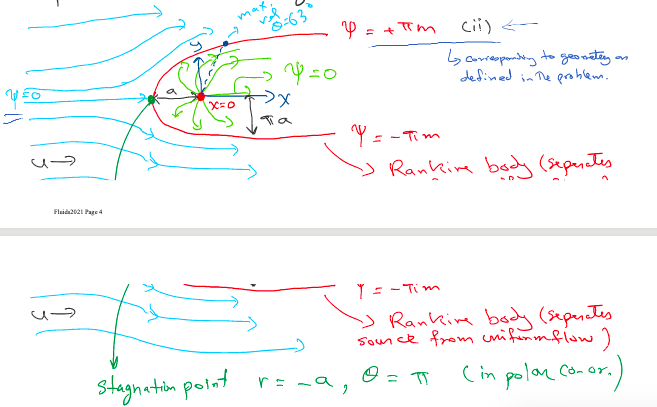 max
vel
θ=63°
ψ = +πm (ii) ←
↳ corresponding to geometry as
defined in the problem.
y
ψ=0
ψ=0
a
x=0
x
πa
ψ = -πm
u →
Rankine body (separates
Fluids2021 Page 4
ψ = -πm
u →
Rankine body (separates
source from uniform flow)
Stagnation point r = -a, θ = π (in polar co-or.)